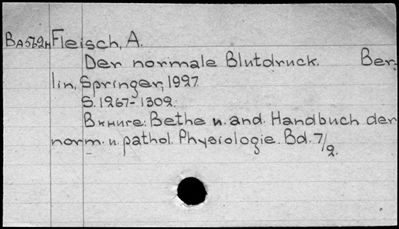 BA5724 Fleisch, A.
Der normale Blutdruck. Ber-
lin, Springer, 1927.
S. 1267-1302.
В книге: Bethe u. and. Handbuch der
norm. u. pathol. Physiologie. Bd. 7/2.